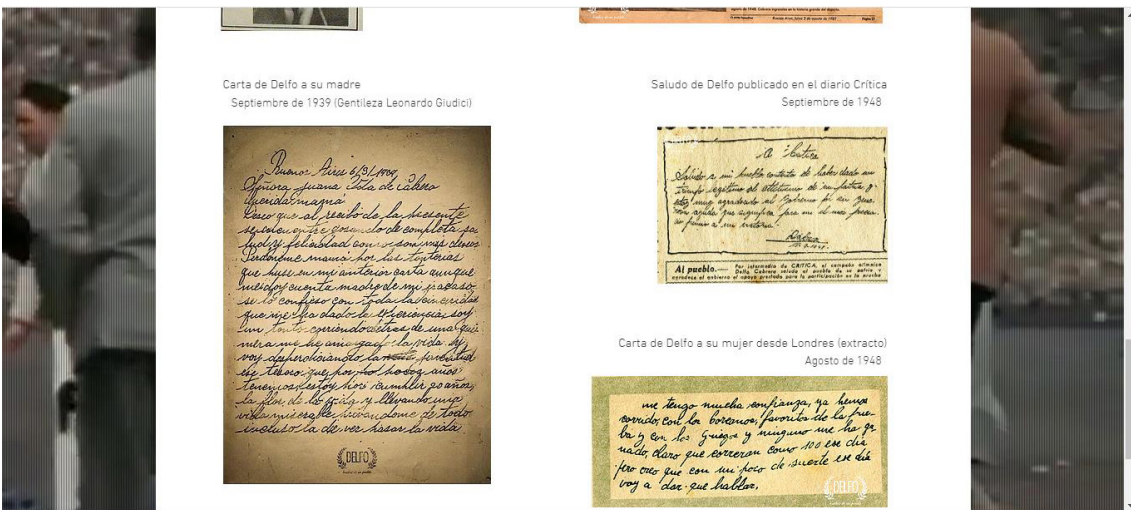 Carta de Delfo a su madre
Septiembre de 1939 (Gentileza Leonardo Giudici)
Buenos Aires
Señora Juana de
Querida mamá
Deseo que al recibo de la presente
se encuentre gosando de completa sa
lud y felicidad como son mis deseos
Perdoneme mamá por las tonterias
que huse en mi anterior carta aunque
me doy cuenta madre de mi fracaso
se lo confieso con toda la sinceridad
que me ha dado la esperiencia, soy
un tonto corriendo detras de una qui
mera me he amargado la vida y
voy desperdiciando la juventud
ese tesoro que por no
tenemos, estoy por cumplir 20 años,
la flor de la vida y llevando una
vida miserable privandome de todo
incluso la de ver pasar la vida
DELFO
Saludo de Delfo publicado en el diario Crítica
Septiembre de 1948
A Critica
Saludo a mi pueblo contento de haber dado un
triunfo legitimo al atletismo de mi patria y
estoy muy agradecido al Gobierno por su gene
rosa ayuda que significa para mi el mas precia
do premio a mi victoria.
Delfo
Al pueblo.— Por intermedio de CRITICA, el campeón olímpico
Delfo Cabrera saluda al pueblo de su patria y
agradece al gobierno el apoyo prestado para la participación en la prueba
Carta de Delfo a su mujer desde Londres (extracto)
Agosto de 1948
me tengo mucha confianza, ya hemos
corrido, con los Coreanos, favoritos de la prue-
ba y con los Griegos y ninguno me ha ga
nado, claro que correran como 100 ese dia
pero creo que con un poco de suerte ese dia
voy a dar que hablar.
DELFO